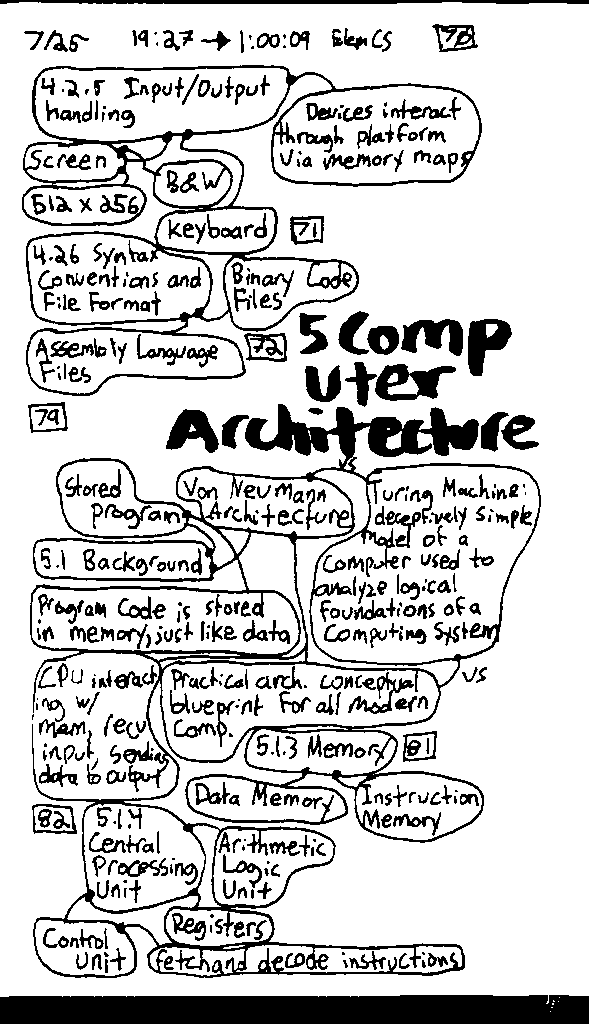 7/25 19:27 → 1:00:09 Elem CS 70
4.2.5 Input/Output
handling
Devices interact
through platform
Via memory maps
Screen
B&W
512 x 256
keyboard 71
4.26 Syntax
Conventions and
File Format
Binary Code
Files
Assembly Language
Files
72
5 Comp
uter
Architecture
79
Stored
program
Von Neumann
Architecture
vs
Turing Machine:
deceptively simple
model of a
Computer used to
analyze logical
foundations of a
Computing System
5.1 Background
Program Code is stored
in memory, just like data
CPU interact
ing w/
mem, recv
input, sending
data to output
Practical arch. conceptual
blueprint for all modern
Comp.
vs
5.1.3 Memory 81
Data Memory
Instruction
Memory
82
5.1.4
Central
Processing
Unit
Arithmetic
Logic
Unit
Registers
Control
Unit
fetch and decode instructions